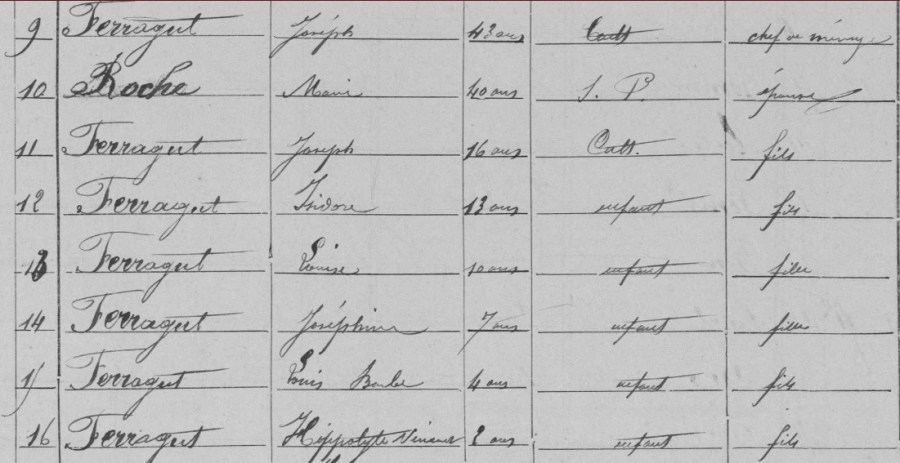 9 Ferragut Joséph 43 ans Cult chef de ménage
10 Roche Marie 40 ans S. P. épouse
11 Ferragut Joseph 16 ans Cult. fils
12 Ferragut Isidore 13 ans enfant fils
13 Ferragut Louise 10 ans enfant fille
14 Ferragut Joséphine 7 ans enfant fille
15 Ferragut Louis 4 ans enfant fils
16 Ferragut Hippolyte 2 ans enfant fils